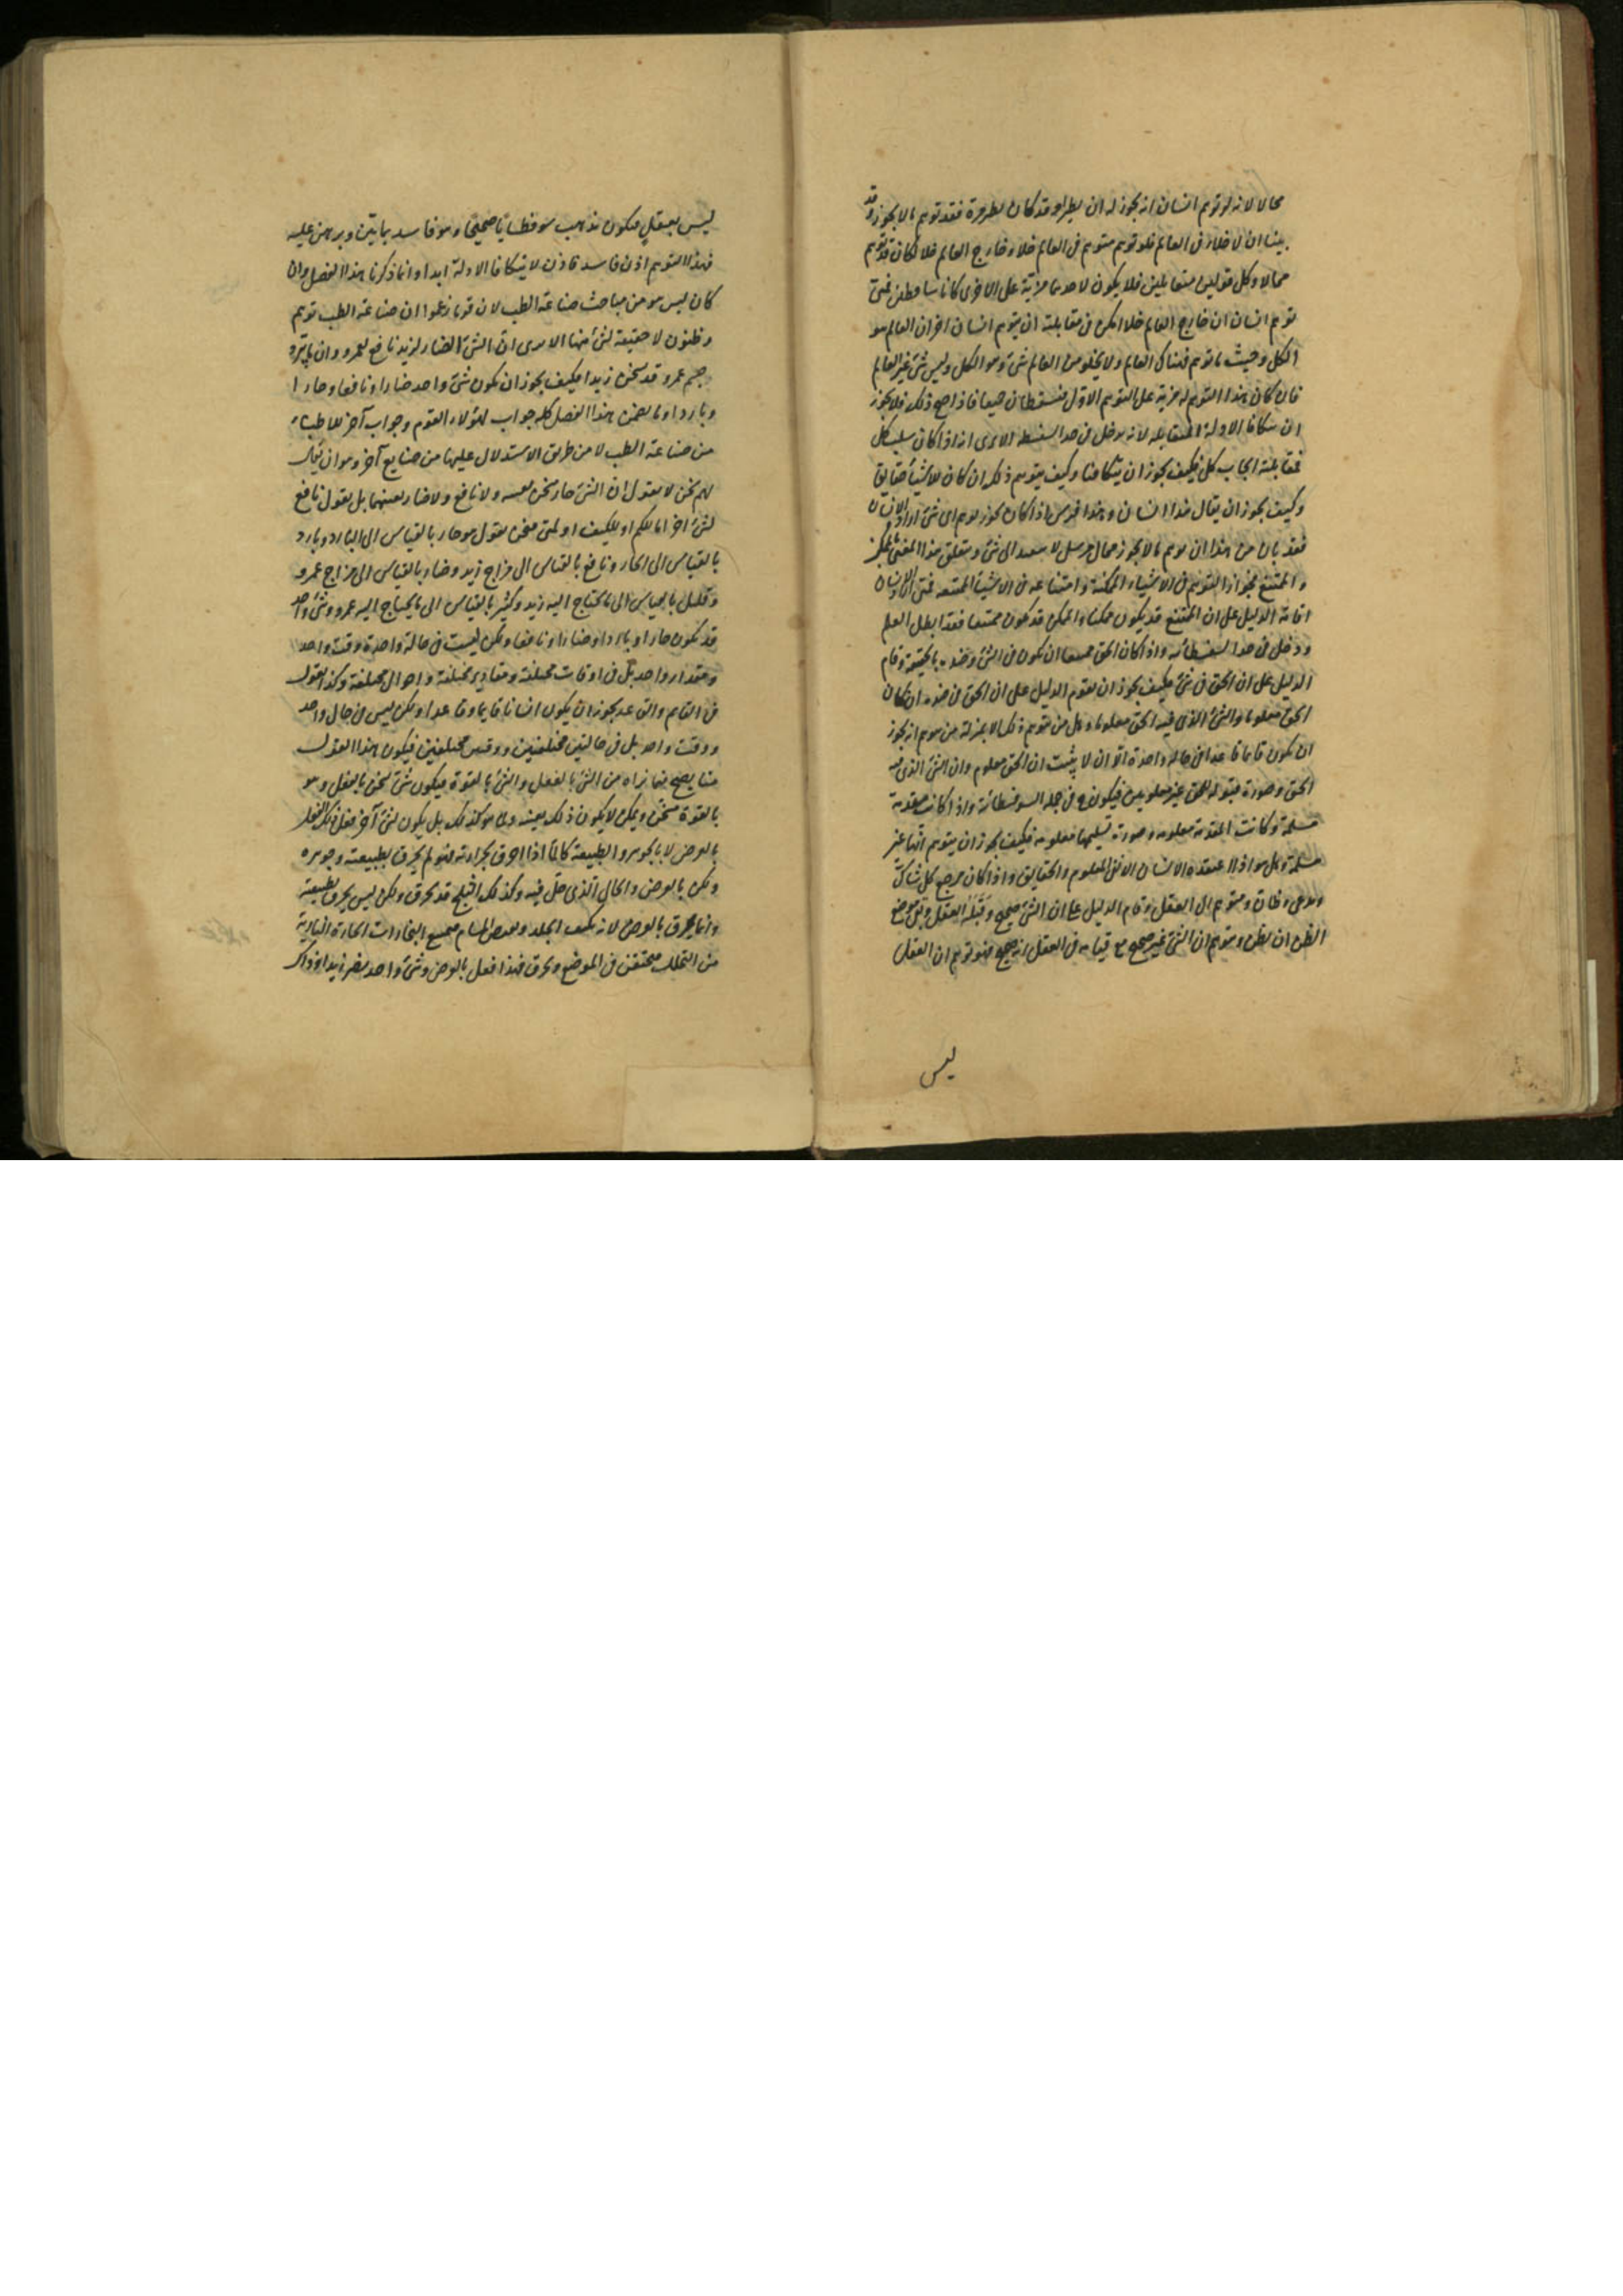 محالا لانه لو توهم انسان انه يجوز له ان يطير وقد كان بطيره فقد توهم ما لا يجوز وقد
بينا ان لا خلاء فى العالم فلو توهم متوهم فى العالم خلاء وخارج العالم خلا لكان قد توهم
محالا وكل قولين متقابلين فلا يكون لاحدهما مزية على الاخرى كانا ساقطين فمتى
توهم انسان ان خارج العالم خلا امكن فى مقابلته ان يتوهم انسان اخر ان العالم هو
الكل وحيث ما توهم فهناك العالم ولا يخلو من العالم شئ وهو الكل وليس شئ غير العالم
فان كان هذا التوهم له مزية على التوهم الاول فيسقطان جميعا فاذا صح ذلك فلا يجوز
ان يتكافا الادلة المتقابلة لانه يدخل فى حد السفسطه الا ترى انه اذا كان سلب كل
مقابلته ايجاب كل فكيف يجوز ان يتكافئا وكيف يتوهم ذلك ان كان للاشيا حقايق
وكيف يجوز ان يقال هذا انسان وهذا فرس اذا كان يجوز توهم اى شئ اراد الانسان
فقد بان من هذا ان توهم ما لا يجوز محال مرسل لا يتعدى الى شئ ويتعلق هذا المعنى بالممكن
والممتنع فجواز التوهم فى الاشياء الممكنة وامتناعه فى الاشيا الممتنعه فمتى اراد الانسان
اقامة الدليل على ان الممتنع قد يكون ممكنا والممكن قد يكون ممتنعا فقد ابطل العلم
ودخل فى حد السفسطائيه واذا كان الحق ممتنعا ان يكون فى الشئ وضده بالحقيقة وقام
الدليل على ان الحق فى شئ فكيف يجوز ان يقوم الدليل على ان الحق فى ضده ان كان
الحق معلوما والشئ الذى فيه الحق معلوما وهل من توهم ذلك الا بمنزلة من توهم انه يجوز
ان يكون قائما قاعدا فى حالة واحدة الا ان لا يثبت ان الحق معلوم وان الشئ الذى فيه
الحق وصورة قبوله للحق غير معلومين فيكون فى جملة السوفسطائية واذا كانت مقدمة
مسلمة وكانت المقدمة معلومه وصورة تسليمها معلومه فكيف يجوز ان يتوهم انها غير
مسلمة وهل هو اذا اعتقده الانسان الا نفى المعلوم والحقايق واذا كان مرجع كل شاك
ومدعى وظان ومتوهم الى العقل وقام الدليل على ان الشئ صحيح وقبله العقل وبقى موضع
الظن ان يظن ويتوهم ان الشئ غير صحيح مع قيامه فى العقل انه صحيح فهو توهم ان العقل
ليس
ليس بعقل فيكون مذهب سوفسطائيا صحيحا وهو فاسد بما بيّن وبرهن عليه
فهذا التوهم اذن فاسد فاذن لا يتكافا الادلة ابدا وانما ذكرنا هذا الفصل وان
كان ليس هو من مباحث صناعة الطب لان قوما زعموا ان صناعة الطب توهم
وظنون لا حقيقة لشئ منها الا ترى ان الشئ الضار لزيد نافع لعمرو وان ما يبرد
جسم عمرو قد يسخن زيدا فكيف يجوز ان يكون شئ واحد ضارا ونافعا وحارا
وباردا وما يضمن هذا الفصل كله جواب لهؤلاء القوم وجواب آخر للاطباء
من صناعة الطب لا من طريق الاستدلال عليها من صنايع آخر وهو ان يقال
لهم نحن لا نقول ان الشئ حار يسخن بعينه ولا نافع ولا ضار بعينهما بل نقول نافع
لشئ اخر اما للكم او للكيف او لمتى فنحن نقول هو حار بالقياس الى البارد وبارد
بالقياس الى الحار ونافع بالقياس الى مزاج زيد وضار بالقياس الى مزاج عمرو
وقليل بالقياس الى ما يحتاج اليه زيد وكثير بالقياس الى ما يحتاج اليه عمرو وشئ واحد
قد يكون حارا وباردا وضارا ونافعا ولكن ليست فى حالة واحدة ووقت واحد
ومقدار واحد بل فى اوقات مختلفة ومقادير مختلفة واحوال مختلفة وكذا القول
فى القايم والقاعد يجوز ان يكون انسانا قايما وقاعدا ولكن ليس فى حال واحد
ووقت واحد بل فى حالتين مختلفتين ووقتين مختلفين فيكون هذا القول
منا يصح فيما نراه من الشئ بالفعل والشئ بالقوة فيكون شئ يسخن بالفعل وهو
بالقوة مسخن ويمكن لا يكون ذلك بعينه وما هو كذلك بل يكون لشئ آخر فعل ذلك الفعل
بالعرض لا بالجوهر والطبيعة كالماء اذا احرق بحرارته فهو لم يحرق بطبيعته وجوهره
ولكن بالعرض والحال الذى حل فيه وكذلك الثلج قد يحرق ولكن ليس يحرق بطبيعته
وانما يحرق بالعرض لانه يكثف الجلد ويقبض المسام فيمنع البخارات الحارة النارية
من التحلل فيحتقن فى الموضع ويحرق فهذا فعل بالعرض وشئ واحد يضر زيدا وذاك